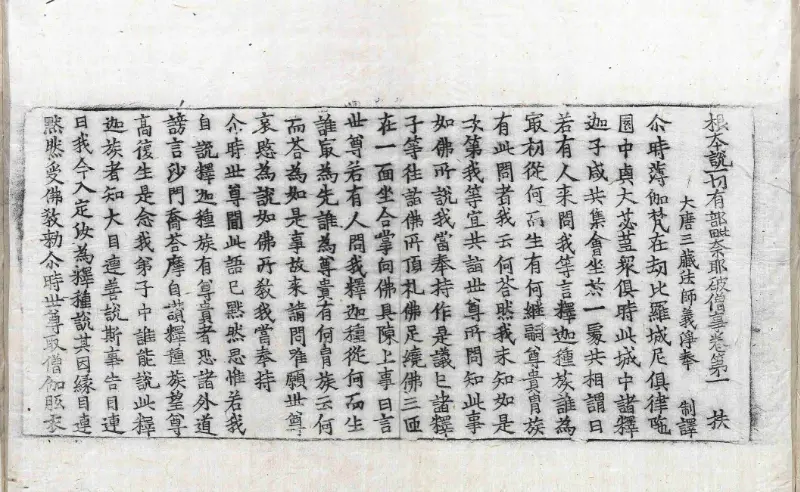 根本說一切有部毗奈耶破僧事卷第一 扶
大唐三藏法師義淨奉 制譯
尒時薄伽梵在劫比羅城尼俱律陁
園中與大苾芻衆俱時此城中諸釋
迦子咸共集會坐於一處共相謂曰
若有人來問我等言釋迦種族誰爲
冣初從何而生有何継嗣尊貴胄族
有此問者我云何荅然我未知如是
次第我等宜共詣世尊所問知此事
如佛所說我當奉持作是議已諸釋
子等往詣佛所頂礼佛足繞佛三匝
在一面坐合掌向佛具陳上事白言
世尊若有人問我釋迦種從何而生
誰冣爲先誰爲尊貴有何胄族云何
而荅爲如是事故來請問唯願世尊
哀愍爲說如佛所敎我當奉持
尒時世尊聞此語已黙然思惟若我
自說釋迦種族有尊貴者恐諸外道
謗言沙門喬荅摩自讃釋種族望尊
高復生是念我弟子中誰能說此釋
迦族者知大目連善說斯事告目連
曰我今入定汝爲釋種說其因緣目連
黙然受佛敎勑尒時世尊取僧伽胝衣